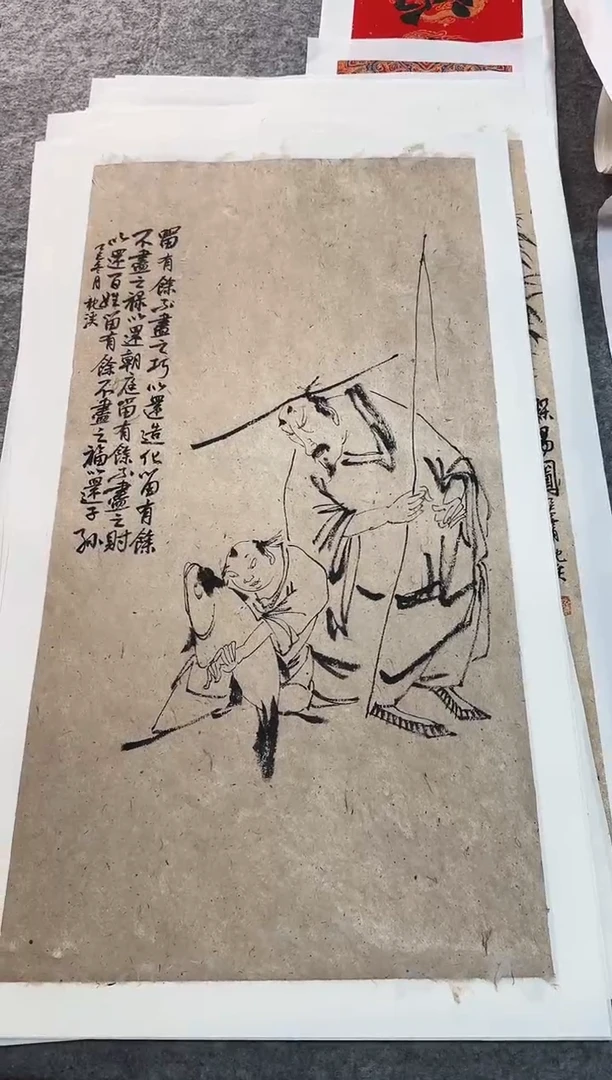 留有餘不盡之巧以還造化留有餘
不盡之祿以還朝庭留有餘不盡之財
以還百姓留有餘不盡之福以還子孫